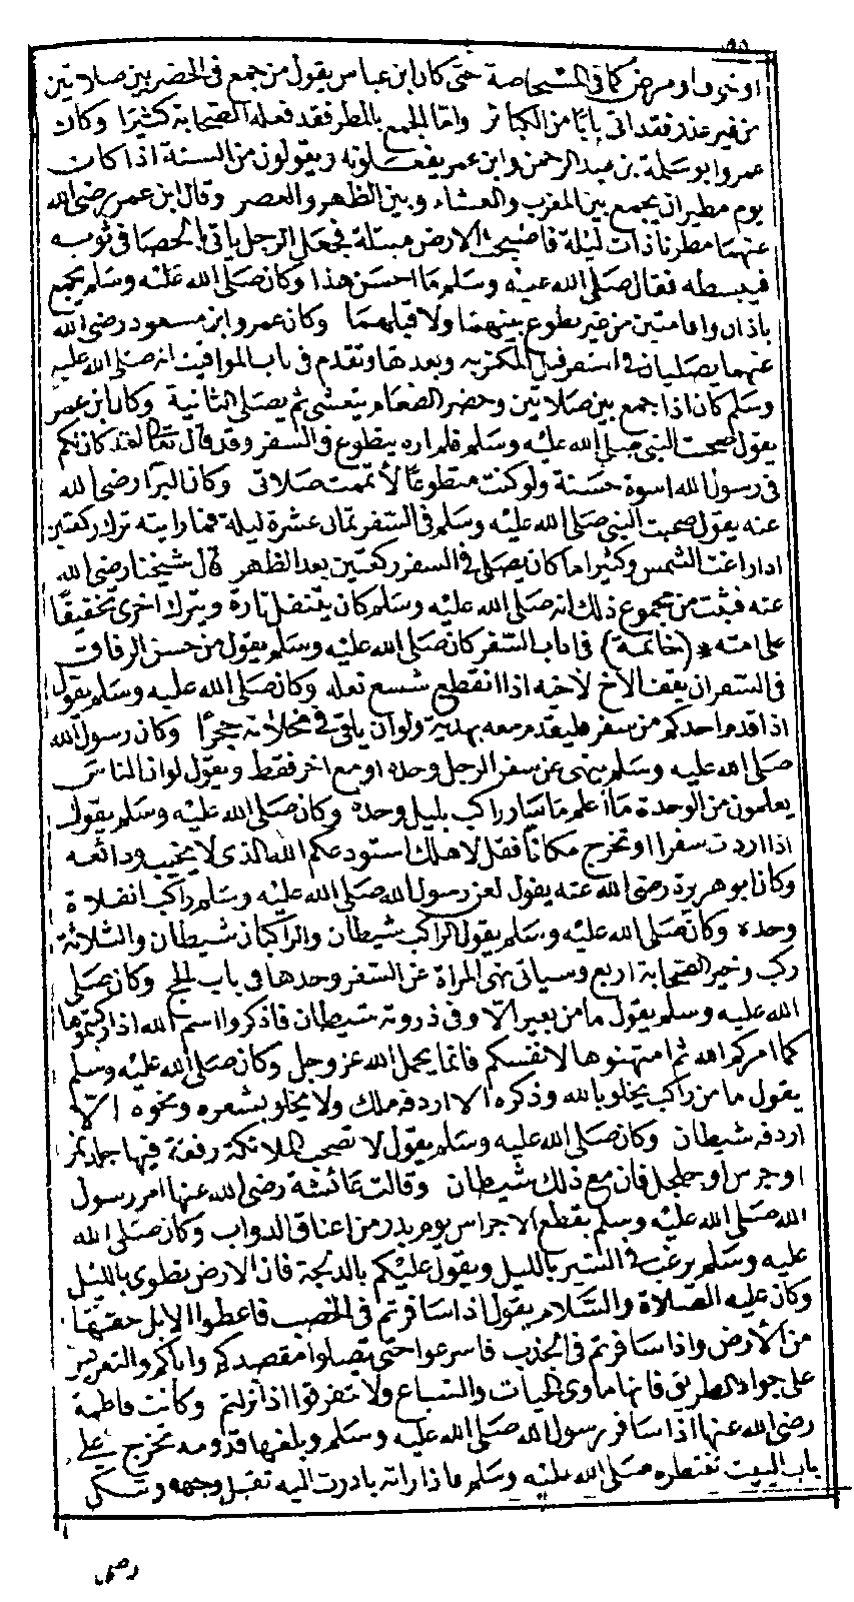 او خوف او مرض كما فى المستحاضة حتى كان ابن عباس يقول من جمع فى الحضر بين صلاتين
من غير عذر فقد اتى بابا من الكبائر واما الجمع بالمطر فقد فعله الصحابة كثيرا وكان
عمرو ابو سلمة بن عبد الرحمن وابن عمر يفعلونه ويقولون من السنة اذا كان
يوم مطير ان يجمع بين المغرب والعشاء وبين الظهر والعصر وقال ابن عمر رضى الله
عنهما مطرنا ذات ليلة فاصبحت الارض مبتلة فجعل الرجل ياتى بالحصا فى ثوبه
فيبسطه فقال صلى الله عليه وسلم ما احسن هذا وكان صلى الله عليه وسلم يجمع
باذان واقامتين من غير تطوع بينهما ولا قبلهما وكان عمر وابن مسعود رضى الله
عنهما يصليان فى السفر قبل المكتوبه وبعدها وتقدم فى باب المواقيت انه صلى الله عليه
وسلم كان اذا جمع بين صلاتين وحضر الطعام يتعشى ثم يصلى الثانية وكان ابن عمر
يقول صحبت النبى صلى الله عليه وسلم فلم اره يتطوع فى السفر وقد قال تعالى لقد كان لكم
فى رسول الله اسوة حسنة ولو كنت متطوعا لاتممت صلاتى وكان البرا رضى الله
عنه يقول صحبت النبى صلى الله عليه وسلم فى السفر ثمان عشرة ليلة فما رايته ترك ركعتين
اذا زاغت الشمس وكثيرا ما كان يصلى فى السفر ركعتين بعد الظهر قال شيخنا رضى الله
عنه فثبت من مجموع ذلك انه صلى الله عليه وسلم كان يتنفل تارة ويترك اخرى تخفيفا
على امته * (خاتمة) فى اداب السفر كان صلى الله عليه وسلم يقول من حسن الرفاق
فى السفر ان يقف الاخ لاخيه اذا انقطع شسع نعله وكان صلى الله عليه وسلم يقول
اذا قدم احدكم من سفر فليقدم معه بهدية ولو ان يلقى فى مخلاته حجرا وكان رسول الله
صلى الله عليه وسلم ينهى عن سفر الرجل وحده او مع اخر فقط ويقول لو ان الناس
يعلمون من الوحدة ما اعلم ما سار راكب بليل وحده وكان صلى الله عليه وسلم يقول
اذا اردت سفرا او تخرج مكانا فقل لاهلك استودعكم الله الذى لا يخيب ودائعه
وكان ابو هريرة رضى الله عنه يقول لعن رسول الله صلى الله عليه وسلم راكب الفلاة
وحده وكان صلى الله عليه وسلم يقول الراكب شيطان والراكبان شيطان والثلاثة
ركب وخير الصحابة اربع وسياتى نهى المراة عن السفر وحدها فى باب الحج وكان صلى
الله عليه وسلم يقول ما من بعير الا وفى ذروته شيطان فاذكروا اسم الله اذا ركبتموها
كما امركم الله ثم امتهنوها لانفسكم فانما يحمل الله عز وجل وكان صلى الله عليه وسلم
يقول ما من راكب يخلو بالله وذكره الا اردفه ملك ولا يخلو بشعره ونحوه الا
اردفه شيطان وكان صلى الله عليه وسلم يقول لا تصحب الملائكة رفقة فيها جلد نمر
او جرس او جلجل فان مع ذلك شيطان وقالت عائشة رضى الله عنها امر رسول
الله صلى الله عليه وسلم بقطع الاجراس يوم بدر من اعناق الدواب وكان صلى الله
عليه وسلم يرغب فى السير بالليل ويقول عليكم بالدلجة فان الارض تطوى بالليل
وكان عليه الصلاة والسلام يقول اذا سافرتم فى الخصب فاعطوا الابل حقها
من الارض واذا سافرتم فى الجذب فاسرعوا حتى تصلوا مقصدكم واياكم والتعريس
على جواد الطريق فانها ماوى الحيات والسباع ولا تتفرقوا اذا نزلتم وكانت فاطمة
رضى الله عنها اذا سافر رسول الله صلى الله عليه وسلم وبلغها قدومه تخرج على
باب البيت تنتظره صلى الله عليه وسلم فاذا راته بادرت اليه تقبل وجهه وتبكى